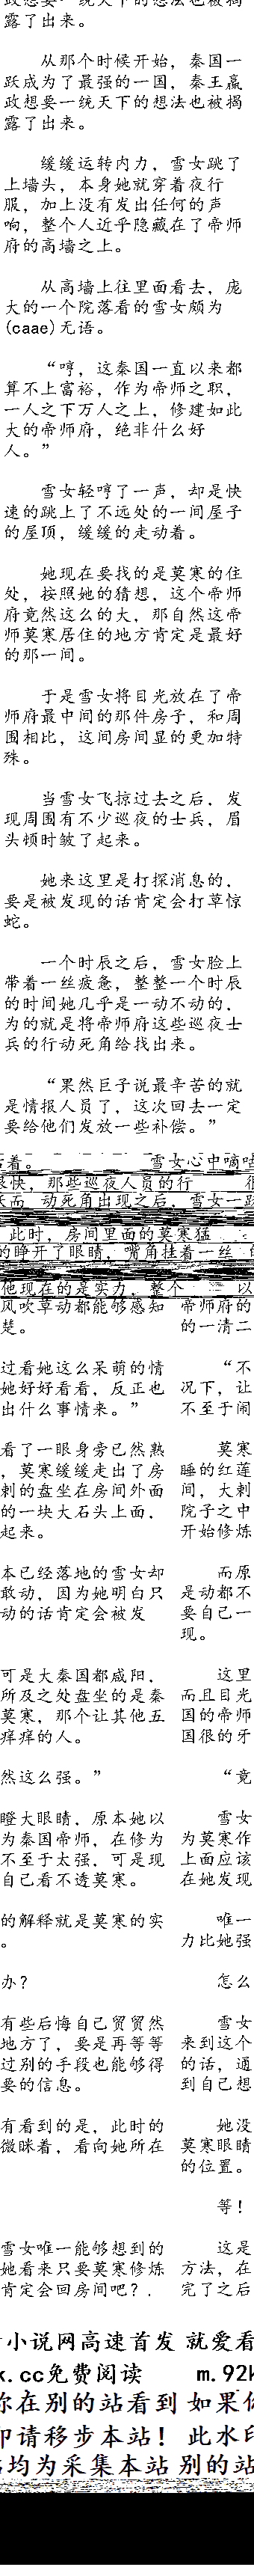 政想要一统天下的想法也被揭
露了出来。
从那个时候开始，秦国一
跃成为了最强的一国，秦王嬴
政想要一统天下的想法也被揭
露了出来。
缓缓运转内力，雪女跳了
上墙头，本身她就穿着夜行
服，加上没有发出任何的声
响，整个人近乎隐藏在了帝师
府的高墙之上。
从高墙上往里面看去，庞
大的一个院落看的雪女颇为
(caae)无语。
“哼，这秦国一直以来都
算不上富裕，作为帝师之职，
一人之下万人之上，修建如此
大的帝师府，绝非什么好
人。”
雪女轻哼了一声，却是快
速的跳上了不远处的一间屋子
的屋顶，缓缓的走动着。
她现在要找的是莫寒的住
处，按照她的猜想，这个帝师
府竟然这么的大，那自然这帝
师莫寒居住的地方肯定是最好
的那一间。
于是雪女将目光放在了帝
师府最中间的那件房子，和周
围相比，这间房间显的更加特
殊。
当雪女飞掠过去之后，发
现周围有不少巡夜的士兵，眉
头顿时皱了起来。
她来这里是打探消息的，
要是被发现的话肯定会打草惊
蛇。
一个时辰之后，雪女脸上
带着一丝疲惫，整整一个时辰
的时间她几乎是一动不动的，
为的就是将帝师府这些巡夜士
兵的行动死角给找出来。
“果然巨子说最辛苦的就
是情报人员了，这次回去一定
要给他们发放一些补偿。”
着。 雪女心中嘀咕
很快，那些巡夜人员的行
动死角出现之后，雪女一跃
此时，房间里面的莫寒猛
的睁开了眼睛，嘴角挂着一丝
他现在的是实力，整个 以
风吹草动都能够感知 帝师府的
楚。 的一清二
过看她这么呆萌的情 “不
她好好看看，反正也 况下，让
出什么事情来。” 不至于闹
看了一眼身旁已然熟 莫寒
，莫寒缓缓走出了房 睡的红莲
刺的盘坐在房间外面 间，大刺
的一块大石头上面， 院子之中
起来。 开始修炼
本已经落地的雪女却 而原
敢动，因为她明白只 是动都不
动的话肯定会被发 要自己一
现。
可是大秦国都咸阳， 这里
所及之处盘坐的是秦 而且目光
莫寒，那个让其他五 国的帝师
痒痒的人。 国很的牙
然这么强。” “竟
瞪大眼睛，原本她以 雪女
为秦国帝师，在修为 为莫寒作
不至于太强，可是现 上面应该
自己看不透莫寒。 在她发现
的解释就是莫寒的实 唯一
。 力比她强
办？ 怎么
有些后悔自己贸贸然 雪女
地方了，要是再等等 来到这个
过别的手段也能够得 的话，通
要的信息。 到自己想
有看到的是，此时的 她没
微眯着，看向她所在 莫寒眼睛
的位置。
等！
雪女唯一能够想到的 这是
她看来只要莫寒修炼 方法，在
肯定会回房间吧？. 完了之后
小说网高速首发 就爱看
k.cc免费阅读 m.92k
你在别的站看到 如果你
印请移步本站！ 此水印
站均为采集本站 别的站